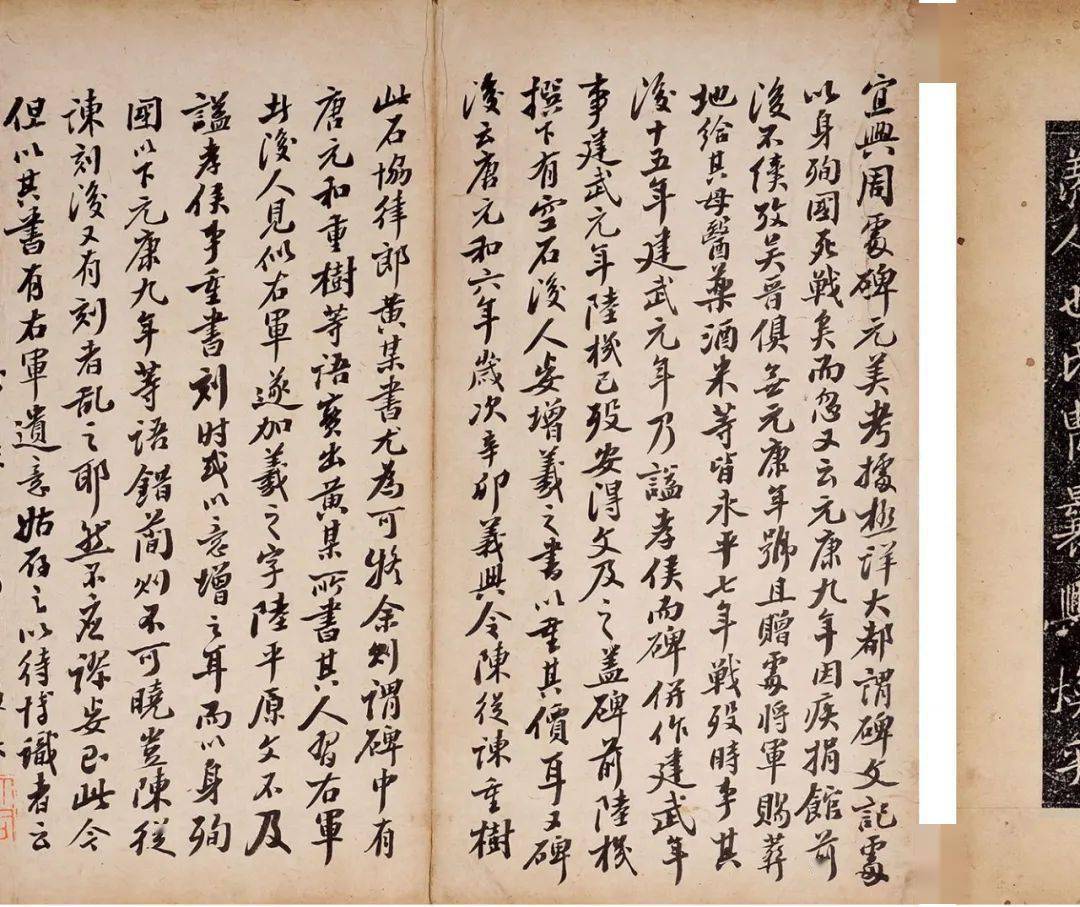 宜興周處碑元美考據極詳大都謂碑文記處
以身殉國死戰矣而忽又云元康九年因疾捐館前
後不僕攷吳晉俱無元康年號且贈處將軍賜葬
地給其母醫藥酒米等皆永平七年戰歿時事其
後十五年建武元年乃謚孝侯而碑併作建武年
事建武元年陸機已歿安得文及之蓋碑前陸機
撰下有空石後人妄增羲之書以重其價耳又碑
後云唐元和六年歲次辛卯義興令陳從諫重樹
此石協律郎黃某書尤為可疑余則謂碑中有
唐元和重樹等語實出黃某所書其人習右軍
書後人見似右軍遂加羲之字陸平原文不及
謚孝侯事重書刻時或以意增之耳而以身殉
國以下元康九年等語錯簡則不可曉豈陳從
諫刻後又有刻者亂之耶然不應謬妄至此今
但以其書有右軍遺意姑存之以待博識者云